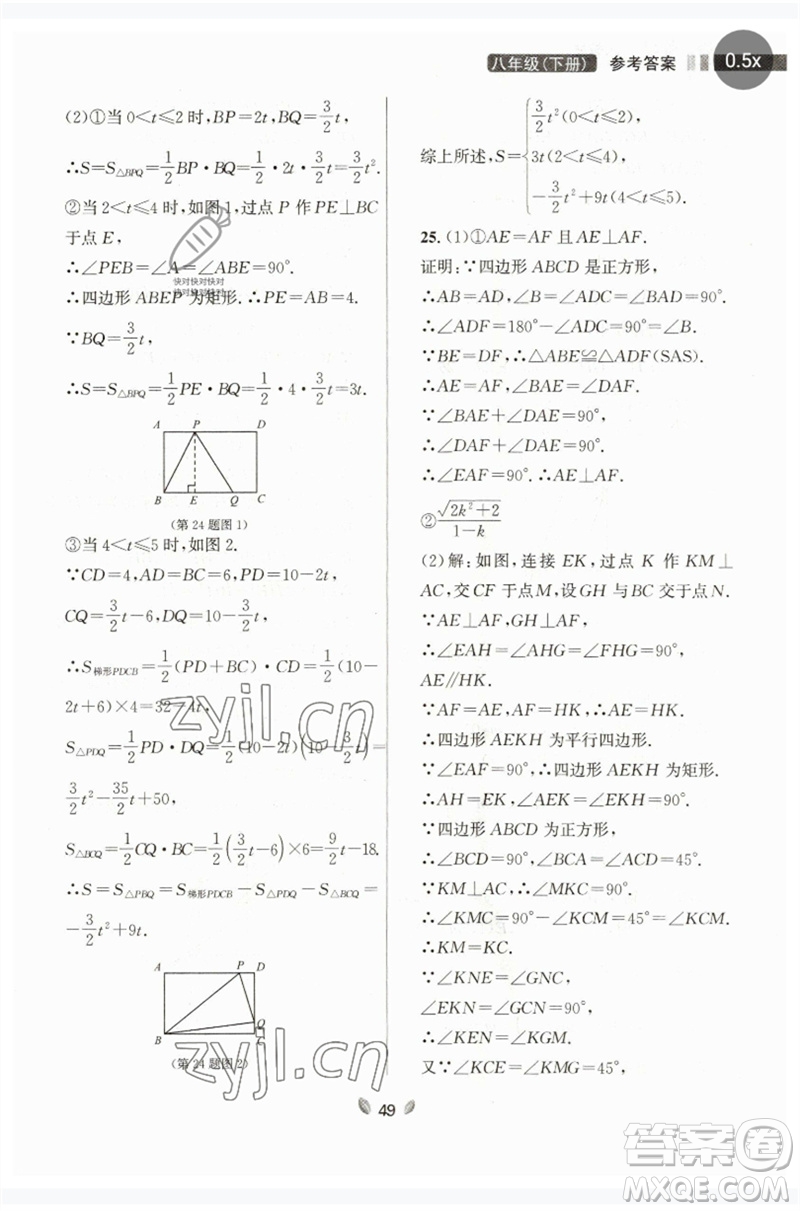 八年级(下册) 参考答案
0.5x
(2)①当 0<t≤2 时,BP=2t,BQ=3/2 t,
∴S=S△BPQ=1/2 BP·BQ=1/2·2t·3/2 t=3/2 t².
②当 2<t≤4 时,如图 1,过点 P 作 PE⊥BC
于点 E,
∴∠PEB=∠A=∠ABE=90°.
快对快对快对
快对快对快对
∴四边形 ABEP 为矩形.∴PE=AB=4.
∵BQ=3/2 t,
∴S=S△BPQ=1/2 PE·BQ=1/2·4·3/2 t=3t.
A P D
B E Q C
(第 24 题图 1)
③当 4<t≤5 时,如图 2.
∵CD=4,AD=BC=6,PD=10-2t,
CQ=3/2 t-6,DQ=10-3/2 t,
∴S梯形PDCB=1/2(PD+BC)·CD=1/2(10-
2t+6)×4=32-4t,
S△PDQ=1/2 PD·DQ=1/2(10-2t)(10-3/2 t)=
3/2 t²-35/2 t+50,
S△BCQ=1/2 CQ·BC=1/2(3/2 t-6)×6=9/2 t-18.
∴S=S△PBQ=S梯形PDCB-S△PDQ-S△BCQ=
-3/2 t²+9t.
A P D
Q
B C
(第 24 题图 2)
综上所述,S={
3/2 t²(0<t≤2),
3t(2<t≤4),
-3/2 t²+9t(4<t≤5).
25. (1)①AE=AF 且 AE⊥AF.
证明:∵四边形 ABCD 是正方形,
∴AB=AD,∠B=∠ADC=∠BAD=90°.
∴∠ADF=180°-∠ADC=90°=∠B.
∵BE=DF,∴△ABE≌△ADF(SAS).
∴AE=AF,∠BAE=∠DAF.
∵∠BAE+∠DAE=90°,
∴∠DAF+∠DAE=90°.
∴∠EAF=90°.∴AE⊥AF.
②√(2k²+2)/(1-k)
(2)解:如图,连接 EK,过点 K 作 KM⊥
AC,交 CF 于点M,设 GH 与 BC 交于点N.
∵AE⊥AF,GH⊥AF.
∴∠EAH=∠AHG=∠FHG=90°.
AE∥HK.
∵AF=AE,AF=HK,∴AE=HK.
∴四边形 AEKH 为平行四边形.
∵∠EAF=90°,∴四边形 AEKH 为矩形.
∴AH=EK,∠AEK=90°.
∵四边形 ABCD 为正方形,
∴∠BCD=90°,∠BCA=∠ACD=45°.
∵KM⊥AC,∴∠MKC=90°.
∴∠KMC=90°-∠KCM=45°=∠KCM.
∴KM=KC.
∵∠KNE=∠GNC,
∠EKN=∠GCN=90°,
∴∠KEN=∠CGN.
又∵∠KCE=∠KMG=45°,
zyjl.cn
zyjl.cn
49
答案卷
MXQE.COM